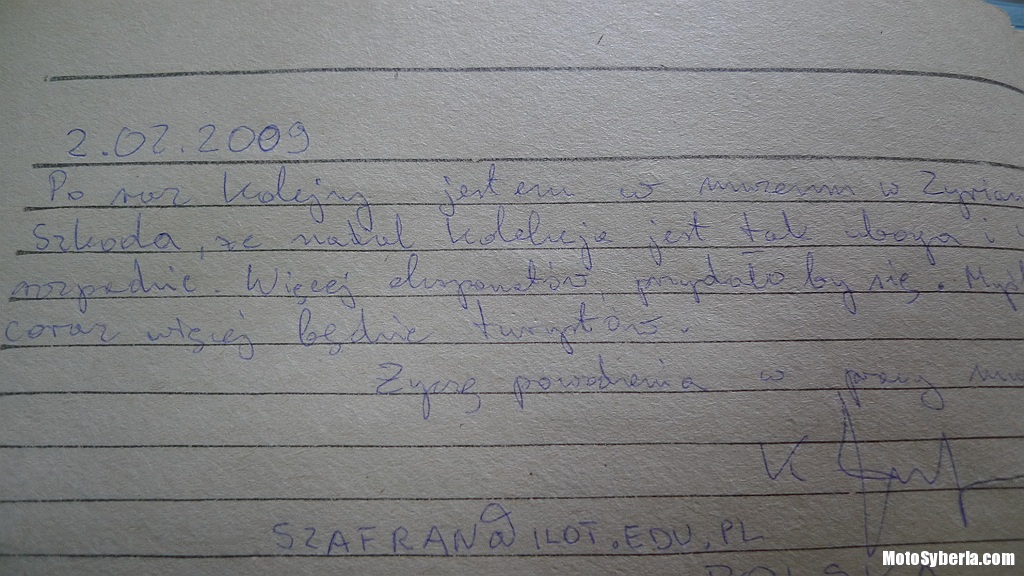 2.02.2009
Po raz kolejny jestem w muzeum w Zyrian
Szkoda, że nadal kolekcja jest tak uboga i
rozpadnie. Więcej eksponatów przydało by się. Myśl
coraz więcej będzie turystów.
Zyczę powodzenia w pracy
K
SZAFRAN@ILOT.EDU.PL
POLSKA
MotoSyberia.com